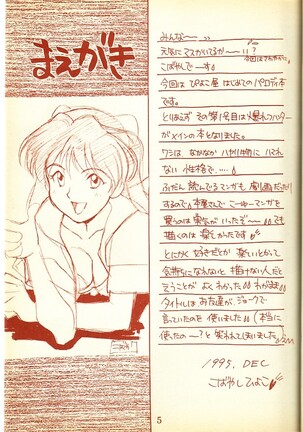 まえがき
みんな〜
元気にマスかいてるか〜い?
こばやしで〜す。
今回は ぴよこ屋 はじめての パロディ本
です。
とりあえず その第1号目は 爆れつハンター
がメインの本となりました。
ワシは、なかなか ハヤリ
ない 性格で.....
ふだん 読んでるマンガも 劇画だったり
するので
買うのは 勇気がいったぞ〜 でも
描くのは 楽しかったです
とにかく 好きだとか 楽しいとかって
気持ちになれないと 描けない人だと
ゆうことが よく わかった
タイトルは お友達が ジョークで
言っていたのを 使いました (本当に
使ったの〜?と 笑われてしまいました)
1995. DEC
こばやしひよこ
5